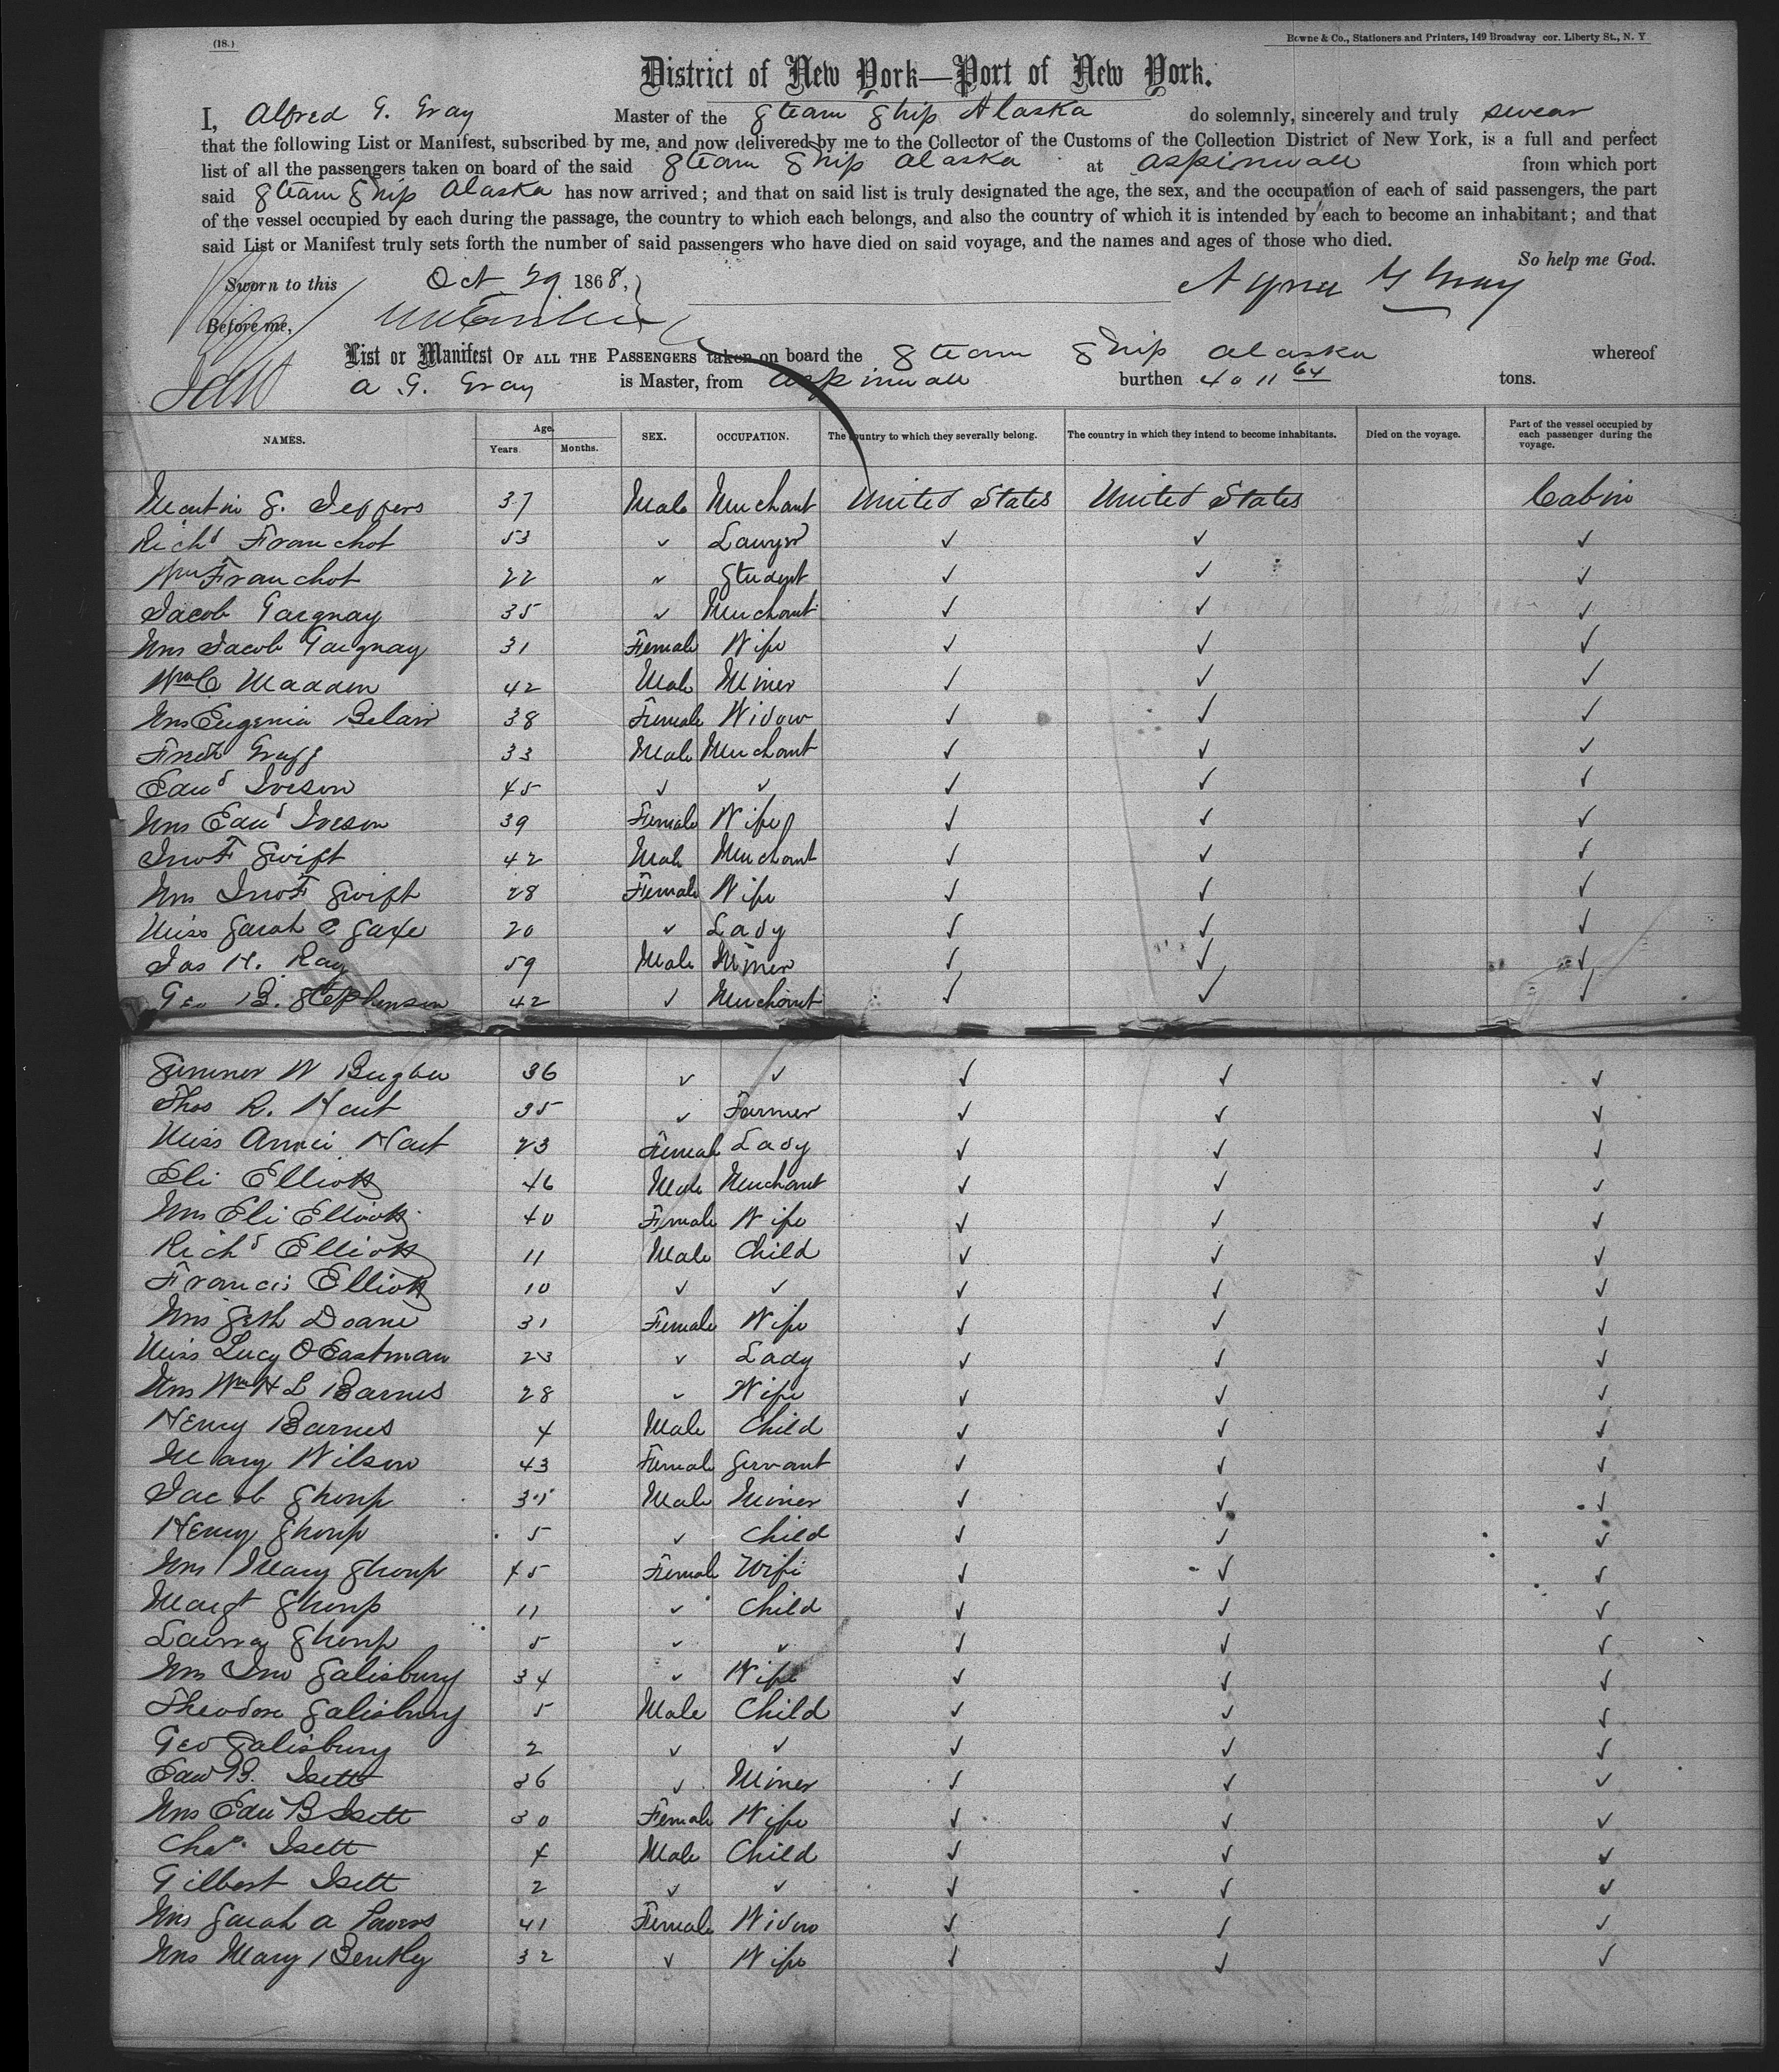 (18.)
Bowne & Co., Stationers and Printers, 149 Broadway cor. Liberty St., N. Y
District of New York—Port of New York.
I, Alfred G. Gray Master of the Steam Ship Alaska do solemnly, sincerely and truly swear
that the following List or Manifest, subscribed by me, and now delivered by me to the Collector of the Customs of the Collection District of New York, is a full and perfect
list of all the passengers taken on board of the said Steam Ship Alaska at Aspinwall from which port
said Steam Ship Alaska has now arrived; and that on said list is truly designated the age, the sex, and the occupation of each of said passengers, the part
of the vessel occupied by each during the passage, the country to which each belongs, and also the country of which it is intended by each to become an inhabitant; and that
said List or Manifest truly sets forth the number of said passengers who have died on said voyage, and the names and ages of those who died.
So help me God.
Sworn to this Oct 29 1868, Gray
Before me,
List or Manifest OF ALL THE PASSENGERS taken on board the Steam Ship Alaska whereof
A G. Gray is Master, from Aspinwall burthen 4011 64 tons.
NAMES. Age. Years. Months. SEX. OCCUPATION. The country to which they severally belong. The country in which they intend to become inhabitants. Died on the voyage. Part of the vessel occupied by each passenger during the voyage.
Martin S. Jeffers 37 Male Merchant United States United States Cabin
Richd Franchot 53 ✓ Lawyer ✓ ✓ ✓
Wm Franchot 22 ✓ Student ✓ ✓ ✓
Jacob 35 ✓ Merchant ✓ ✓ ✓
Mrs Jacob 31 Female Wife ✓ ✓ ✓
Wm C Madden 42 Male Miner ✓ ✓ ✓
Mrs Eugenia Belair 38 Female Widow ✓ ✓ ✓
Fredk Graff 33 Male Merchant ✓ ✓ ✓
Edwd Iveson 45 ✓ ✓ ✓ ✓ ✓
Mrs Edwd Iveson 39 Female Wife ✓ ✓ ✓
Jno F Swift 42 Male Merchant ✓ ✓ ✓
Mrs Jno F Swift 28 Female Wife ✓ ✓ ✓
Miss Sarah C Saxe 20 ✓ Lady ✓ ✓ ✓
Jas H. Ray 59 Male Miner ✓ ✓ ✓
Geo B. Stephenson 42 ✓ Merchant ✓ ✓ ✓
Sumner W Bugbee 36 ✓ ✓ ✓ ✓ ✓
Thos R. Hart 35 ✓ Farmer ✓ ✓ ✓
Miss Annie Hart 23 Female Lady ✓ ✓ ✓
Eli Elliott 46 Male Merchant ✓ ✓ ✓
Mrs Eli Elliott 40 Female Wife ✓ ✓ ✓
Richd Elliott 11 Male Child ✓ ✓ ✓
Francis Elliott 10 ✓ ✓ ✓ ✓ ✓
Mrs Seth Doane 31 Female Wife ✓ ✓ ✓
Miss Lucy O Eastman 23 ✓ Lady ✓ ✓ ✓
Mrs Wm H L Barnes 28 ✓ Wife ✓ ✓ ✓
Henry Barnes 4 Male Child ✓ ✓ ✓
Mary Wilson 43 Female Servant ✓ ✓ ✓
Jacob Shoup 35 Male Miner ✓ ✓ ✓
Henry Shoup 5 ✓ Child ✓ ✓ ✓
Mrs Mary Shoup 45 Female Wife ✓ ✓ ✓
Margt Shoup 11 ✓ Child ✓ ✓ ✓
Laura Shoup 5 ✓ ✓ ✓ ✓ ✓
Mrs Jno Salisbury 34 ✓ Wife ✓ ✓ ✓
Theodore Salisbury 5 Male Child ✓ ✓ ✓
Geo Salisbury 2 ✓ ✓ ✓ ✓ ✓
Edw B. Isett 36 ✓ Miner ✓ ✓ ✓
Mrs Edw B Isett 30 Female Wife ✓ ✓ ✓
Chas. Isett 4 Male Child ✓ ✓ ✓
Gilbert Isett 2 ✓ ✓ ✓ ✓ ✓
Mrs Sarah A Powers 41 Female Widow ✓ ✓ ✓
Mrs Mary Bentley 32 ✓ Wife ✓ ✓ ✓